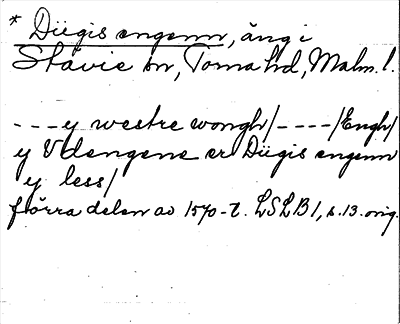 * Diigis engenn, äng i
Stävie sn, Torna hd, Malm. l.
- - - y westre wongh/ - - - - /Engh/
y Vdengene er Diigis engenn
y less/
förra delen av 1570-t. LSLB 1, s. 13. orig.